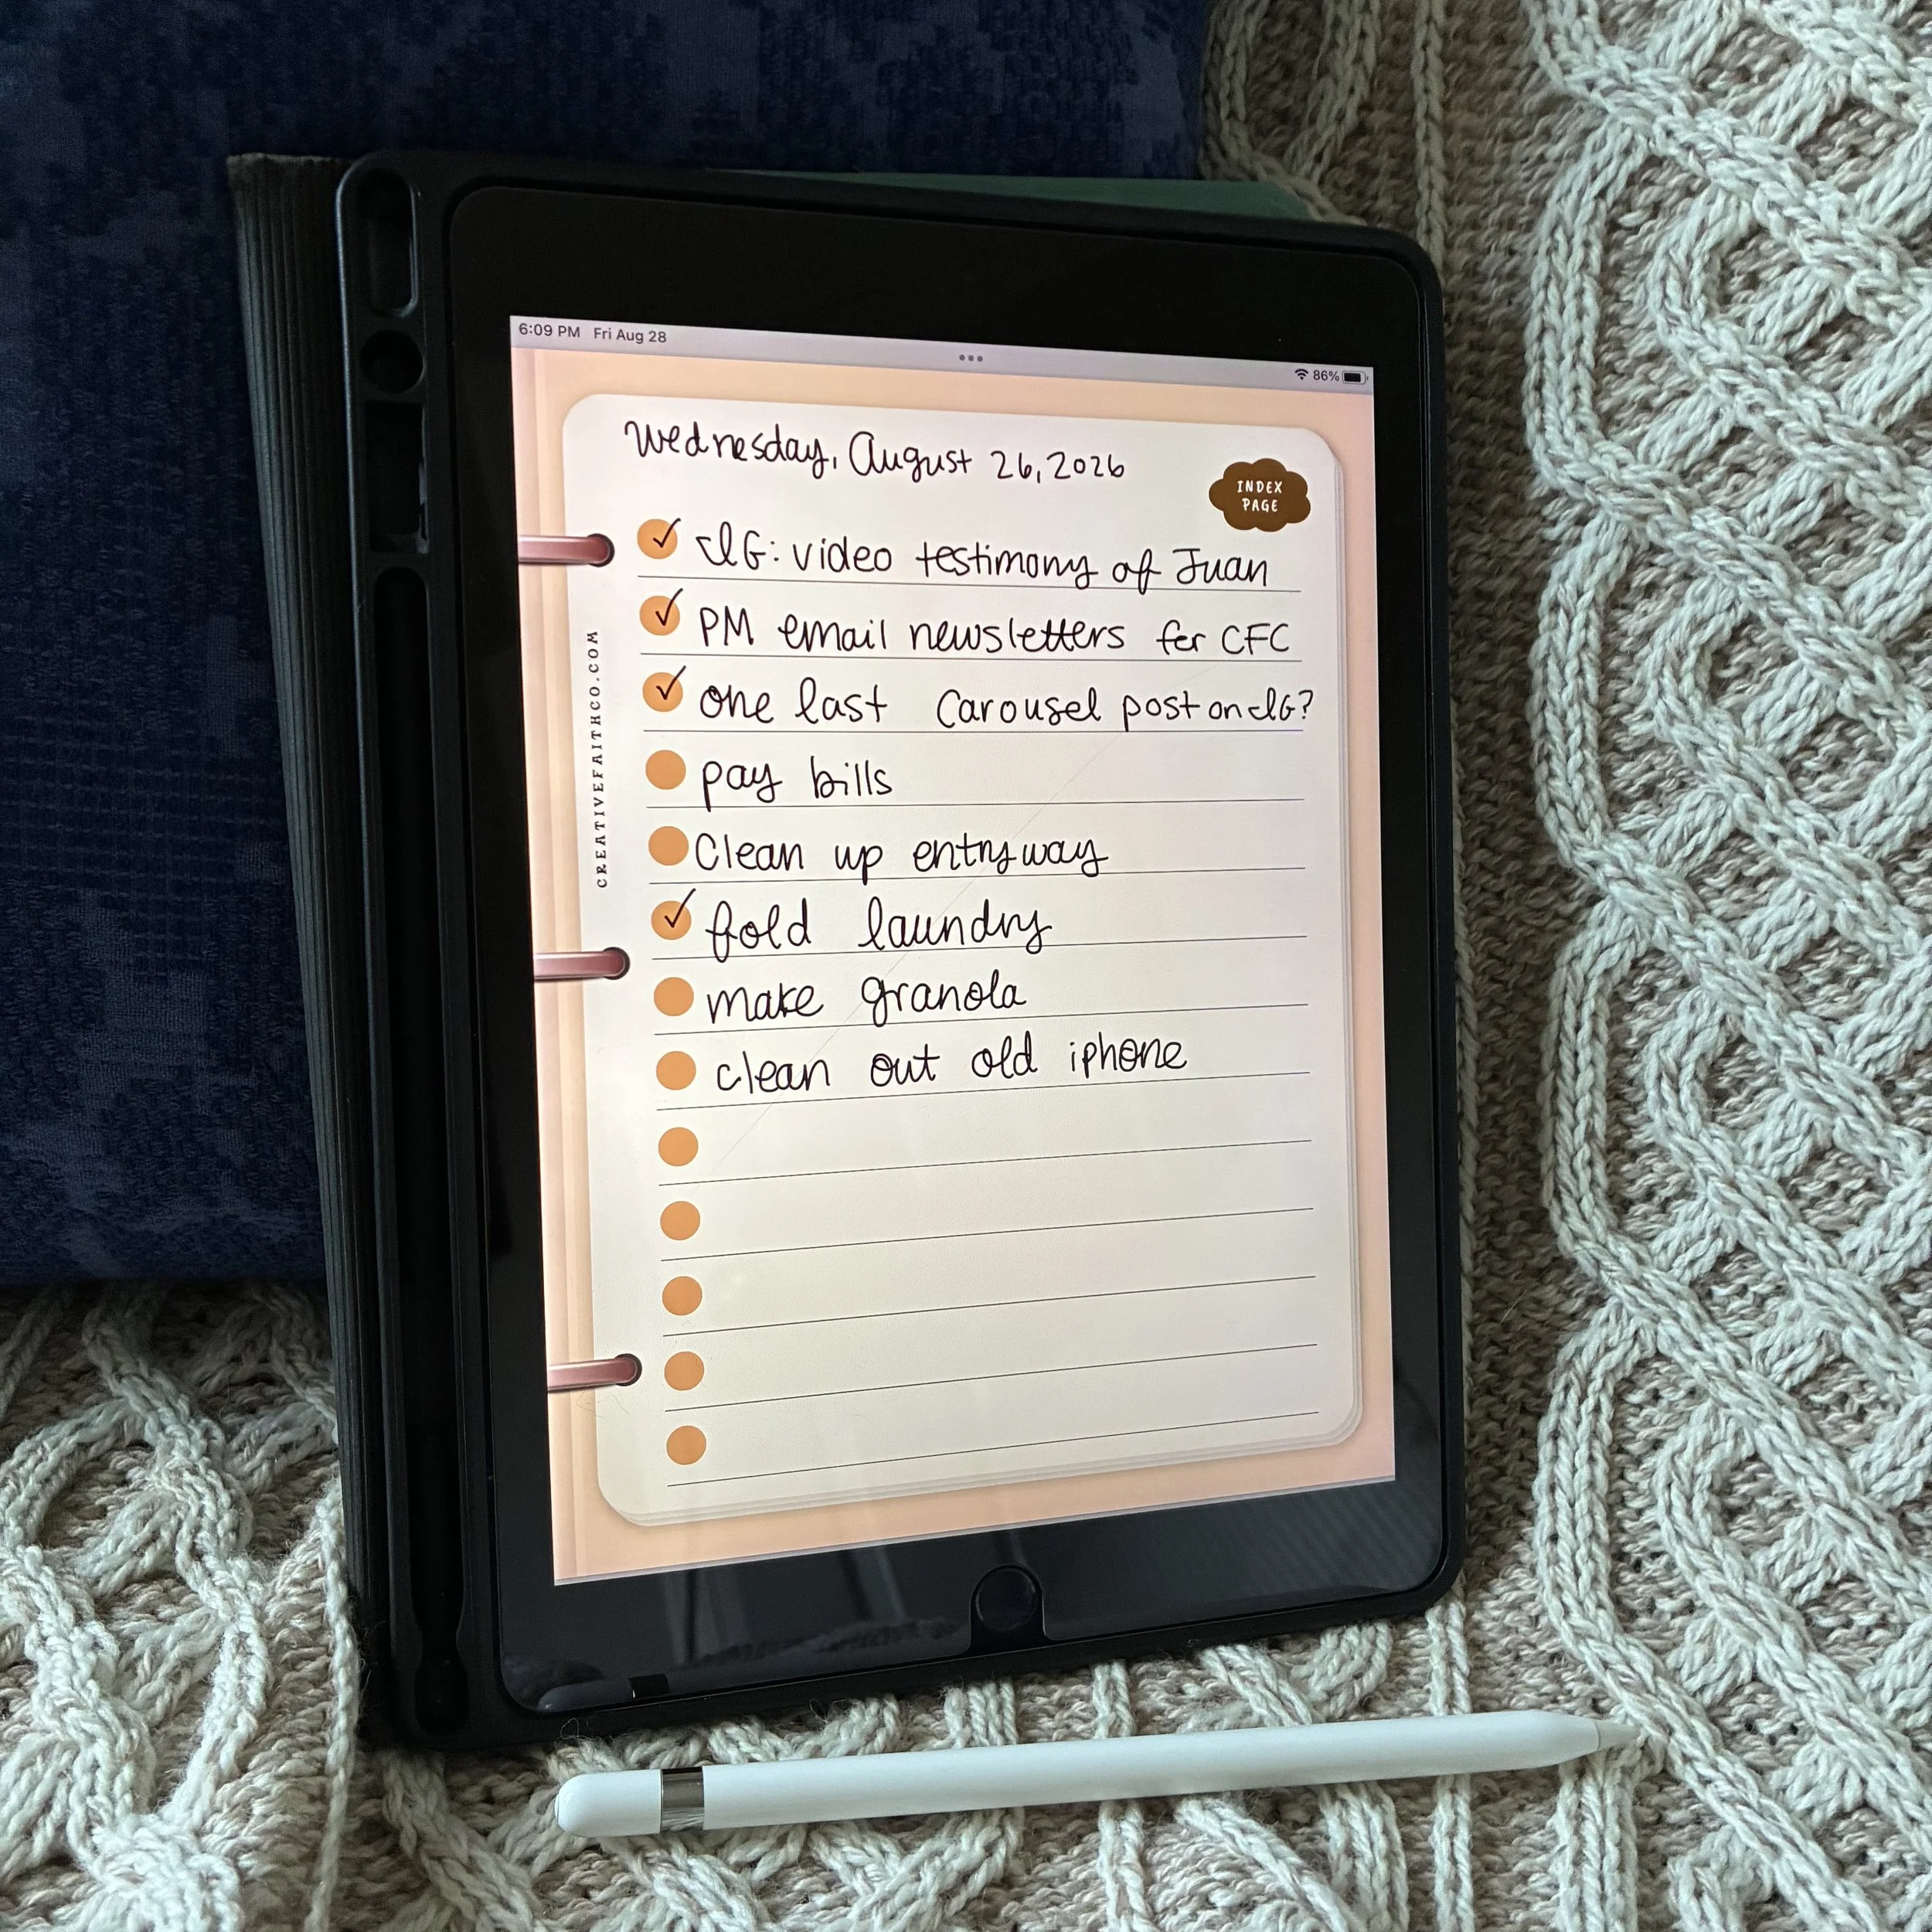 6:09 PM Fri Aug 28
86%
Wednesday, August 26, 2026
INDEX
PAGE
IG: video testimony of Juan
PM email newsletters for CFC
one last Carousel post on IG?
pay bills
Clean up entryway
fold laundry
make granola
clean out old iphone
CREATIVEFAITHCO.COM